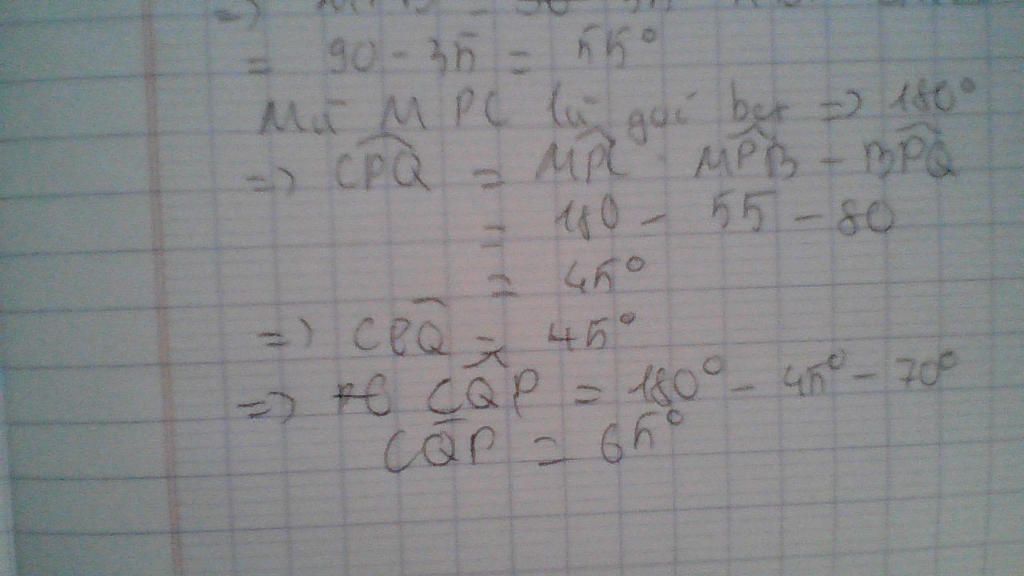 =>
= 90 - 35 = 55°
Mà MPC là góc bẹt => 180°
=> CPQ = MPC MPB - BPQ
= 180 - 55 - 80
= 45°
=> CPQ = 45°
=> CQP = 180° - 45° - 70°
CQP = 65°